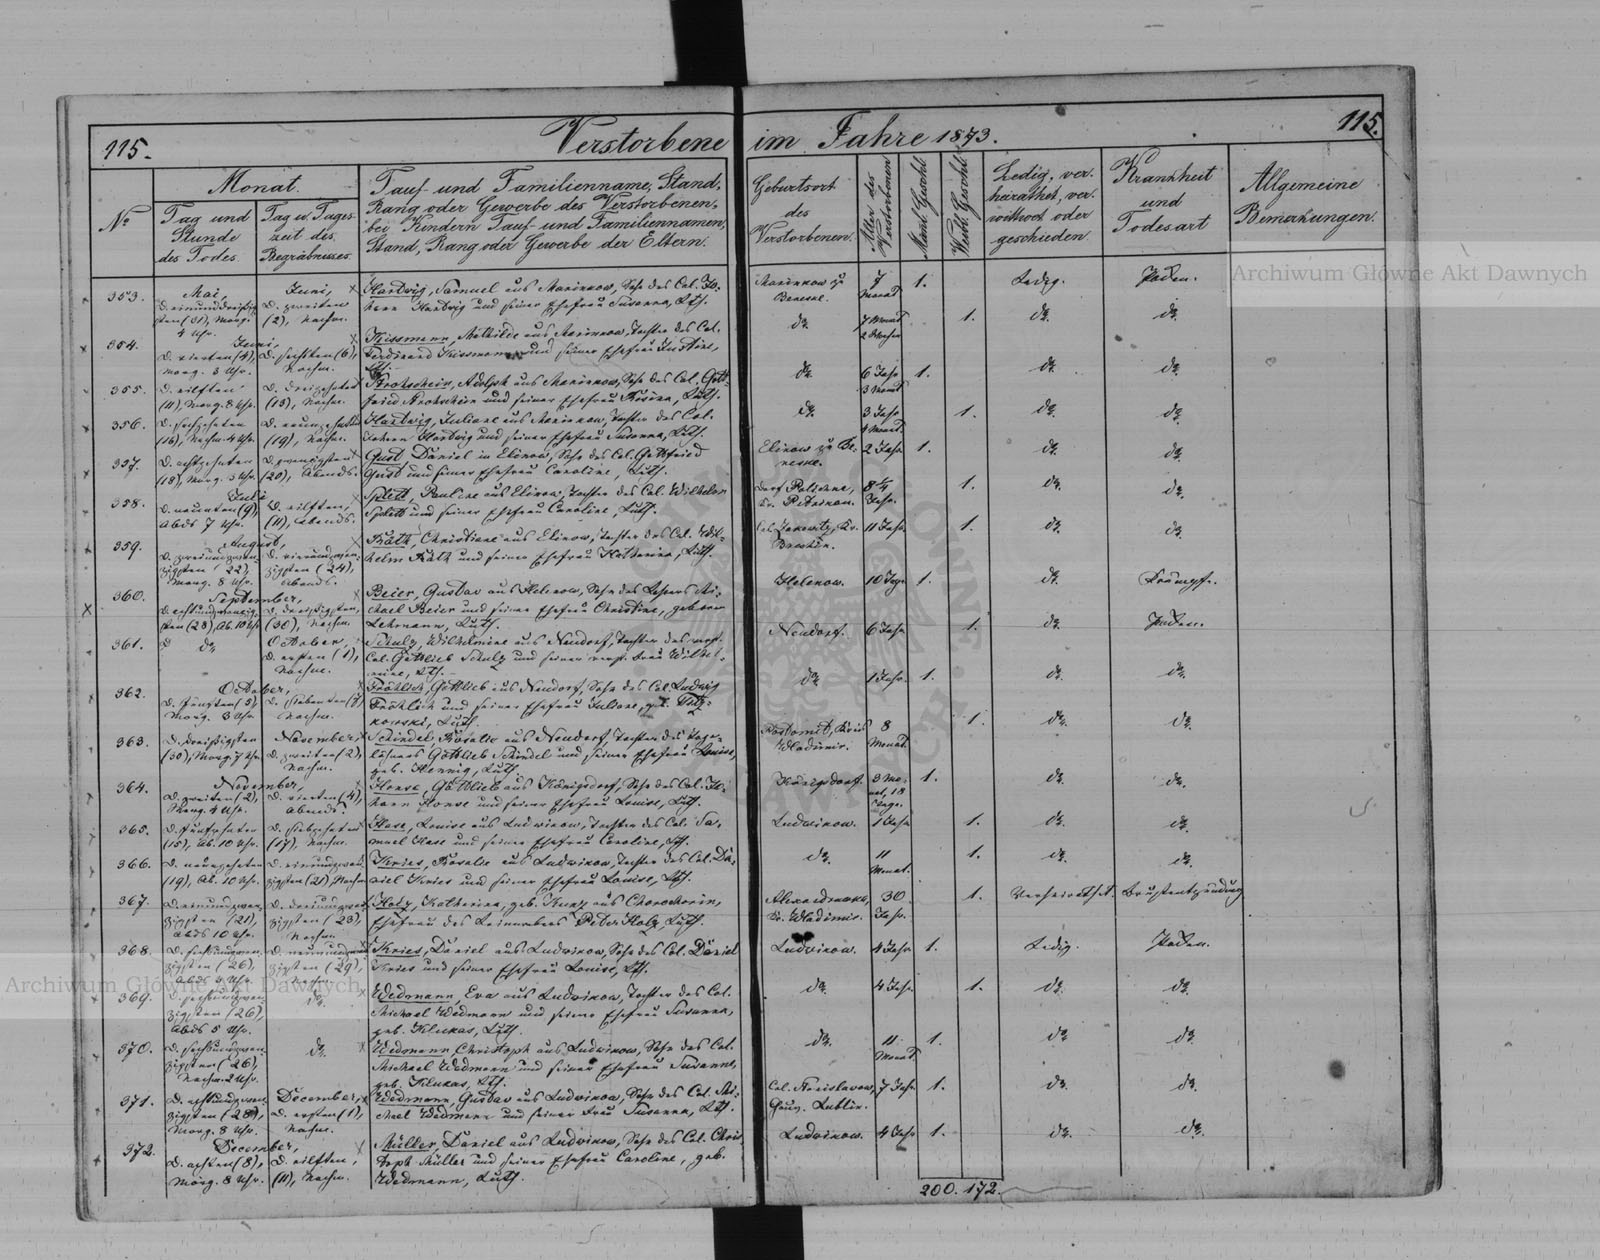 115.
Verstorbene im Jahre 1873.
115.
No
Monat.
Tag und Stunde des Todes.
Tag u. Tageszeit des Begräbnisses
Tauf- und Familienname, Stand,
Rang oder Gewerbe des Verstorbenen,
bei Kindern Tauf- und Familiennamen,
Stand, Rang oder Gewerbe der Eltern.
Geburtsort
des
Verstorbenen.
Alter des Verstorbenen
Männl. Geschl.
Weibl. Geschlecht
Ledig, ver-
heirathet, ver-
wittwet oder
geschieden
Krankheit
und
Todesart
Allgemeine
Bemerkungen.
353.
Mai,
Juni,
(31), Morg.
4 Uhr.
D. zweiten
(2), Nachm.
Hartwig, Samuel aus Marinkow, Sohn des Col. Jo-
hann Hartwig und seiner Ehefrau Susanna, Luth.
7
Monat
1.
Ledig.
Pocken.
354.
Juni,
D. vierten (4),
Morg. 3 Uhr.
D. sechsten (6),
Nachm.
Kissmann, Mathilde aus Marinkow, Tochter des Col.
Ferdinand Kissmann und seiner Ehefrau Justine,
Luth.
do.
7 Monat
2 Wochen
1.
do.
do.
355.
D. eilften
(11), Morg. 8 Uhr.
D. dreizehnten
(13), Nachm.
Krohschein, Adolph aus Marinkow, Sohn des Col. Gott-
fried Krohschein und seiner Ehefrau Rosina, Luth.
do.
6 Jahr
3 Monat
1.
do.
do.
356.
D. sechzehnten
(16), Nachm. 4 Uhr.
D. neunzehnten
(19), Nachm.
Hartwig, Juliane aus Marinkow, Tochter des Col.
Johann Hartwig und seiner Ehefrau Susanna, Luth.
do.
3 Jahr
4 Monat.
1.
do.
do.
357.
D. achtzehnten
(18), Morg. 3 Uhr.
D. zwanzigsten
(20), Abends.
Gust Daniel in Elinow, Sohn des Col. Gottfried
Gust und seiner Ehefrau Caroline, Luth.
2 Jahr
1.
do.
do.
358.
Juli
D. neunten (9),
Abds 7 Uhr.
D. eilften,
(11), Abends.
Splett, Pauline aus Elinow, Tochter des Col. Wilhelm
Splett und seiner Ehefrau Caroline, Luth.
Jahr.
1.
do.
do.
359.
August,
D. zweiundzwan-
zigsten (22),
Morg. 8 Uhr.
D. vierundzwan-
zigsten (24),
Abends.
Rätz, Christiane aus Elinow, Tochter des Col. Wil-
helm Rätz und seiner Ehefrau Katharina, Luth.
11 Jahr
1.
do.
do.
360.
September,
D. achtundzwanzig-
sten (28), Ab. 10 Uhr
D. dreißigsten,
(30), Nachm.
Beier, Gustav aus Helenow, Sohn des Lehrers Mi-
chael Beier und seiner Ehefrau Christine, geborene
Lehmann, Luth.
Helenow.
10 Tage
1.
do.
Krämpfe.
361.
do.
October,
D. ersten (1),
Nachm.
Schulz, Wilhelmine aus Neudorf, Tochter des verst.
Col. Gottlieb Schulz und seiner verst. Frau Wilhel-
mine, Luth.
Neudorf.
6 Jahr
1.
do.
Pocken.
362.
October,
D. fünften (5),
Morg. 3 Uhr.
D. siebenten (7)
Nachm.
Fröhlich, Gottlieb aus Neudorf, Sohn des Col. Ludwig
Fröhlich und seiner Ehefrau Juliane,
kowski, Luth.
do.
1 Jahr.
1.
do.
do.
363.
D. dreißigsten
(30), Morg. 7 Uhr.
November,
D. zweiten (2),
Nachm.
Schindel, Rosalie aus Neudorf, Tochter des Tage-
löhners Gottlieb Schindel und seiner Ehefrau Louise,
geb. Hennig, Luth.
Wladimir.
8
Monat.
1.
do.
do.
364.
November,
D. zweiten (2),
Morg. 4 Uhr.
D. vierten (4),
Abends.
Gottlieb aus Königsdorf, Sohn des Col. Jo-
hann und seiner Ehefrau Louise, Luth.
Königsdorf.
3 Mo-
nat, 18
Tage.
1.
do.
do.
365.
D. fünfzehnten
(15), Ab. 10 Uhr.
D. siebzehnten
(17), Nachm.
Hase, Louise aus Ludwikow, Tochter des Col. Sa-
muel Hase und seiner Ehefrau Caroline, Luth.
Ludwikow.
1 Jahr
1.
do.
do.
366.
D. neunzehnten
(19), Ab. 10 Uhr.
D. einundzwan-
zigsten (21), Nachm
Kries, Rosalie aus Ludwikow, Tochter des Col. Da-
niel Kries und seiner Ehefrau Louise, Luth.
do.
11
Monat.
1.
do.
do.
367.
D. einundzwan-
zigsten (21),
Abds 10 Uhr.
D. dreiundzwan-
zigsten (23),
Nachm.
Holz, Katharina, geb. Kunz aus
Ehefrau des Peter Holz, Luth.
Kr. Wladimir.
30.
Jahr.
1.
Verheirathet.
Brustentzündung
368.
D. sechsundzwan-
zigsten (26),
D. neunundzwan-
zigsten (29),
Nachm.
Kries, Daniel aus Ludwikow, Sohn des Col. Daniel
Kries und seiner Ehefrau Louise, Luth.
Ludwikow.
4 Jahr
1.
Ledig.
Pocken.
369.
D. sechsundzwan-
zigsten (26),
Abds 5 Uhr.
do.
Wedmann, Eva aus Ludwikow, Tochter des Col.
Michael Wedmann und seiner Ehefrau Susanna,
geb. Klukas, Luth.
do.
4 Jahr.
1.
do.
do.
370.
D. sechsundzwan-
zigsten (26),
Nachm. 2 Uhr.
do.
Wedmann, Christoph aus Ludwikow, Sohn des Col.
Michael Wedmann und seiner Ehefrau Susanna,
geb. Klukas, Luth.
do.
11
Monat
1.
do.
do.
371.
D. achtundzwan-
zigsten (28),
Morg. 8 Uhr.
December,
D. ersten (1),
Nachm.
Wedmann, Gustav aus Ludwikow, Sohn des Col. Mi-
chael Wedmann und seiner Frau Susanna, Luth.
Gouv. Lublin.
7 Jahr
1.
do.
do.
372.
December,
D. achten (8),
Morg. 8 Uhr.
D. eilften,
(11), Nachm.
Müller, Daniel aus Ludwikow, Sohn des Col. Chris-
toph Müller und seiner Ehefrau Caroline, geb.
Wedmann, Luth.
Ludwikow.
4 Jahr
1.
do.
do.
200. 172.
Archiwum Główne Akt Dawnych
Archiwum Główne Akt Dawnych